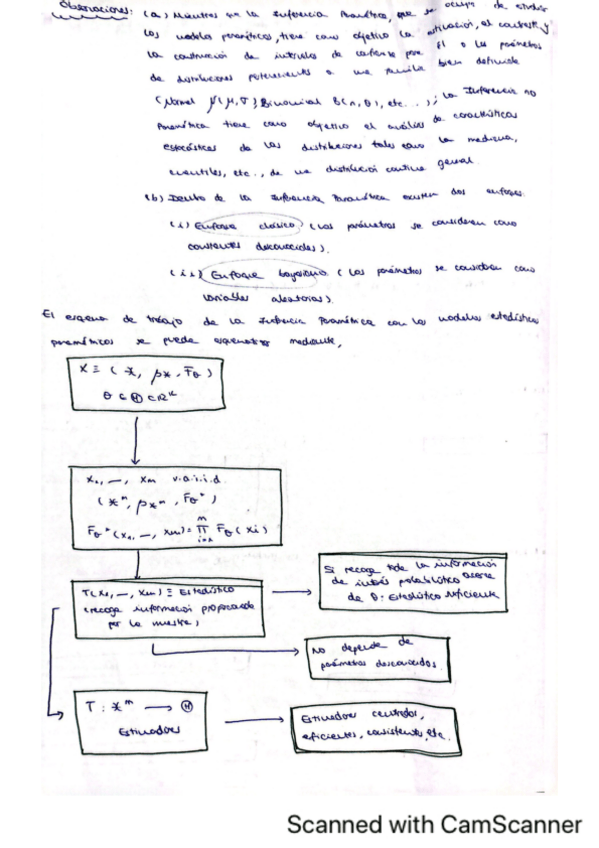 Observaciones: (a) Mientras que la Inferencia Paramétrica, que se ocupa de estudiar
los modelos paramétricos, tiene como objetivo la estimación, el contraste y
la construcción de intervalos de confianza para él o los parámetros
de distribuciones pertenecientes a una familia bien definida
(Normal N(μ,σ), Binomial B(n,θ), etc...), la Inferencia no
Paramétrica tiene como objetivo el análisis de características
estocásticas de las distribuciones tales como la mediana,
cuantiles, etc., de una distribución continua general.
(b) Dentro de la Inferencia Paramétrica existen dos enfoques.
(i) Enfoque clásico (Los parámetros se consideran como
constantes desconocidas).
(ii) Enfoque bayesiano (Los parámetros se consideran como
variables aleatorias).
El esquema de trabajo de la Inferencia Paramétrica con los modelos estadísticos
paramétricos se puede esquematizar mediante,
X ≡ (χ, βχ, Fθ)
θ ∈ Θ ⊂ ℝᵏ
X₁, —, Xn v.a.i.i.d.
(χⁿ, βχⁿ, Fθ*)
Fθ*(x₁, —, xn) = ∏ᵢ₌₁ⁿ Fθ(xi)
T(X₁, —, Xn) ≡ Estadístico
(recoge información proporcionada
por la muestra)
Si recoge toda la información
de interés probabilístico acerca
de θ: Estadístico suficiente
No depende de
parámetros desconocidos.
T: χⁿ → Θ
Estimadores
Estimadores centrados,
eficientes, consistentes, etc.
Scanned with CamScanner